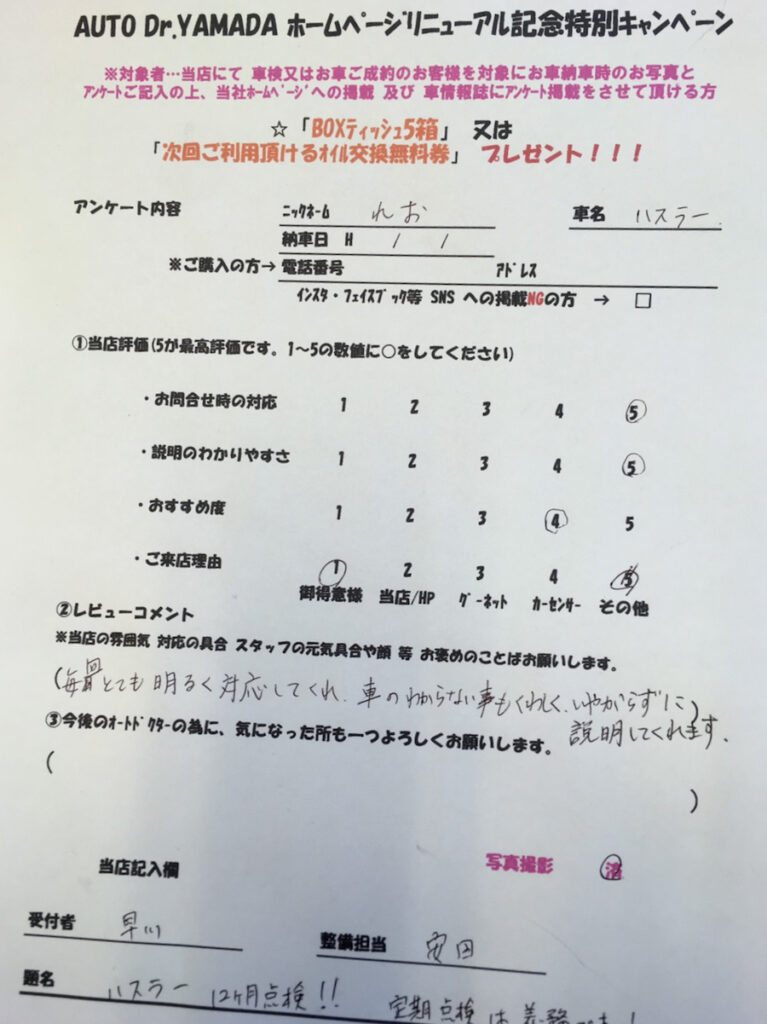 AUTO Dr.YAMADA ホームページリニューアル記念特別キャンペーン
※対象者…当店にて 車検又はお車ご成約のお客様を対象にお車納車時のお写真と
アンケートご記入の上、当社ホームページへの掲載 及び 車情報誌にアンケート掲載をさせて頂ける方
☆「BOXティッシュ5箱」 又は
「次回ご利用頂けるオイル交換無料券」 プレゼント！！！
アンケート内容 ニックネーム れお 車名 ハスラー
納車日 H / /
※ご購入の方→ 電話番号 アドレス
インスタ・フェイスブック等 SNS への掲載NGの方 → □
①当店評価(5が最高評価です。1～5の数値に○をしてください)
・お問合せ時の対応 1 2 3 4 5
・説明のわかりやすさ 1 2 3 4 5
・おすすめ度 1 2 3 4 5
・ご来店理由 1 2 3 4 5
御得意様 当店/HP グーネット カーセンサー その他
②レビューコメント
※当店の雰囲気 対応の具合 スタッフの元気具合や顔 等 お褒めのことばお願いします。
(毎回とても明るく対応してくれ、車のわからない事もくわしく、いやがらずに)
説明してくれます。
③今後のオートドクターの為に、気になった所も一つよろしくお願いします。
( )
当店記入欄 写真撮影 済
受付者 早川 整備担当 安田
題名 ハスラー 12ヶ月点検!! 定期点検は義務です!